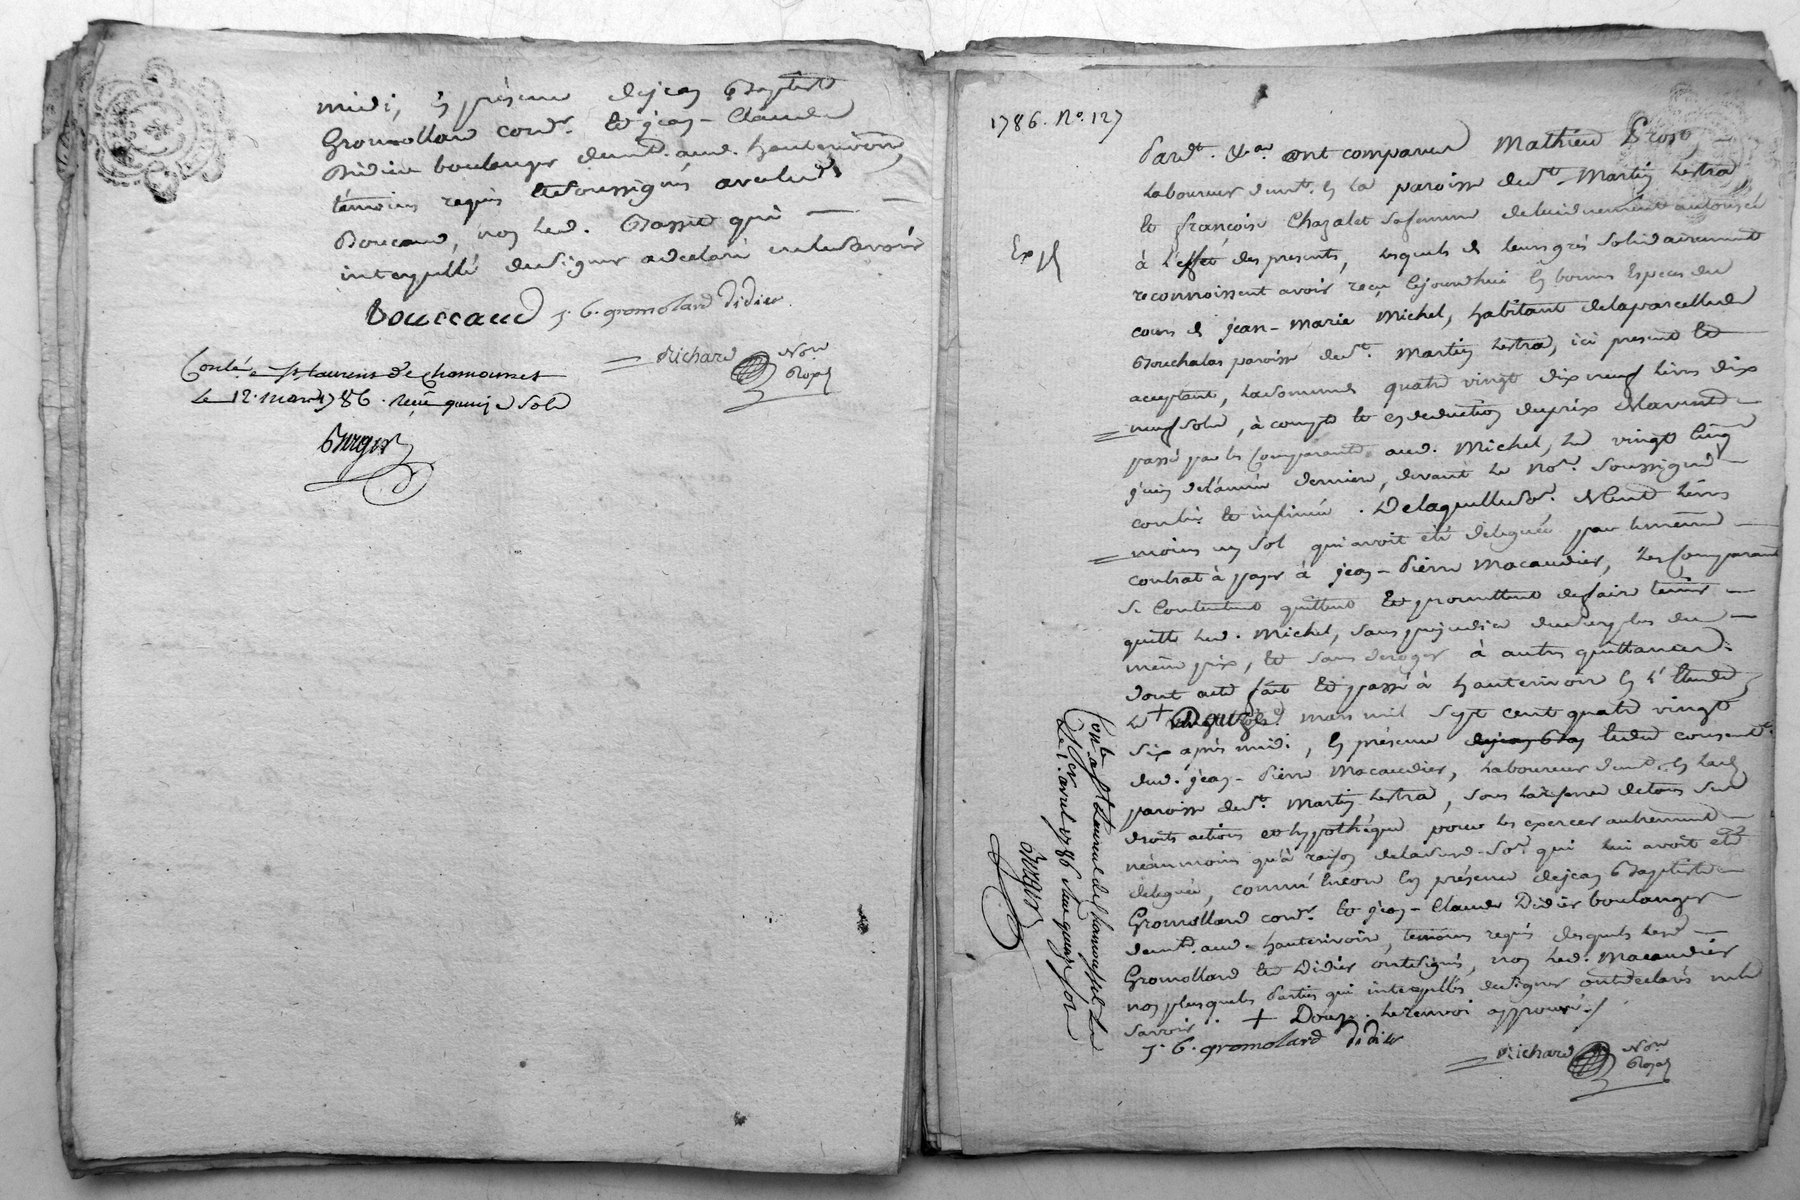 midi, en présence de jean Baptiste
Gromolland cordr. et jean-Claude
Didier boulanger demt. aud. hauterivoire,
témoins requis et soussignés avec led.
Boucaud, non led. Basset qui
interpellé de signer a déclaré ne le savoir
Bouccaud J. B. gromoland didier
Richard Nore Royal
Conlé. a St laurens de Chamousset
Le 12. mars 1786. reçu quinze sols
Burgos
1786. No. 127
Expé
Pardt. &a. ont comparu Mathieu Prost
laboureur demt. en la paroisse de St. Martin Lestra,
et françoise Chazalet sa femme de lui duement autorisée
à l'effet des presents, lesquels de leurs grés solidairement
reconnoissent avoir reçu cejourdhui en bonnes Especes du
cours de jean-Marie Michel, habitant de la parcelle de
Bouchalas paroisse de St. Martin Lestra, ici present et
acceptant, la somme de quatre vingt dix neuf livres dix
neuf sols, à compte et en deduction du prix de la vente
passée par les Comparants aud. Michel, le vingt cinq
juin de l'année derniere, devant le Nore. soussigné
conlé. et insinué. De laquelle sõe. de Cent livres
moins un sol qui avoit été deleguée par le même
contrat à payer à jean-Pierre Macaudier, les Comparants
se Contentent quittent et promettent de faire tenir
quitte led. Michel, sans prejudice du surplus du
même prix, et sans deroger à autres quittances.
dont acte fait et passé à hauterivoire en l'Etude,
le + mars mil sept cent quatre vingt
six après midi, en présence de jean Bap et du consentt.
dud. jean-Pierre Macaudier, laboureur demt. en lad.
paroisse de St. Martin Lestra, sous la reserve de tous ses
droits actions et hypothéque pour les exercer autrement
néanmoins qu'à raison de la susd. sõe. qui lui avoit été
deleguée, comme encore en présence de jean Baptiste
Gromolland cordr. et jean-Claude Didier boulanger
demt. aud. hauterivoire, temoins requis desquels lesd.
Gromolland et Didier ont signés, non led. Macaudier
non plus que les Parties qui interpellés de signer ont declarés ne le
savoir. + Douze. le renvoi approuvé./
J. B. gromoland didier
Richard Nore Royal
Conlé. a St Laurent de Chamousset Le
Le 1. avril 1786 reçu quinze sols
Burgos